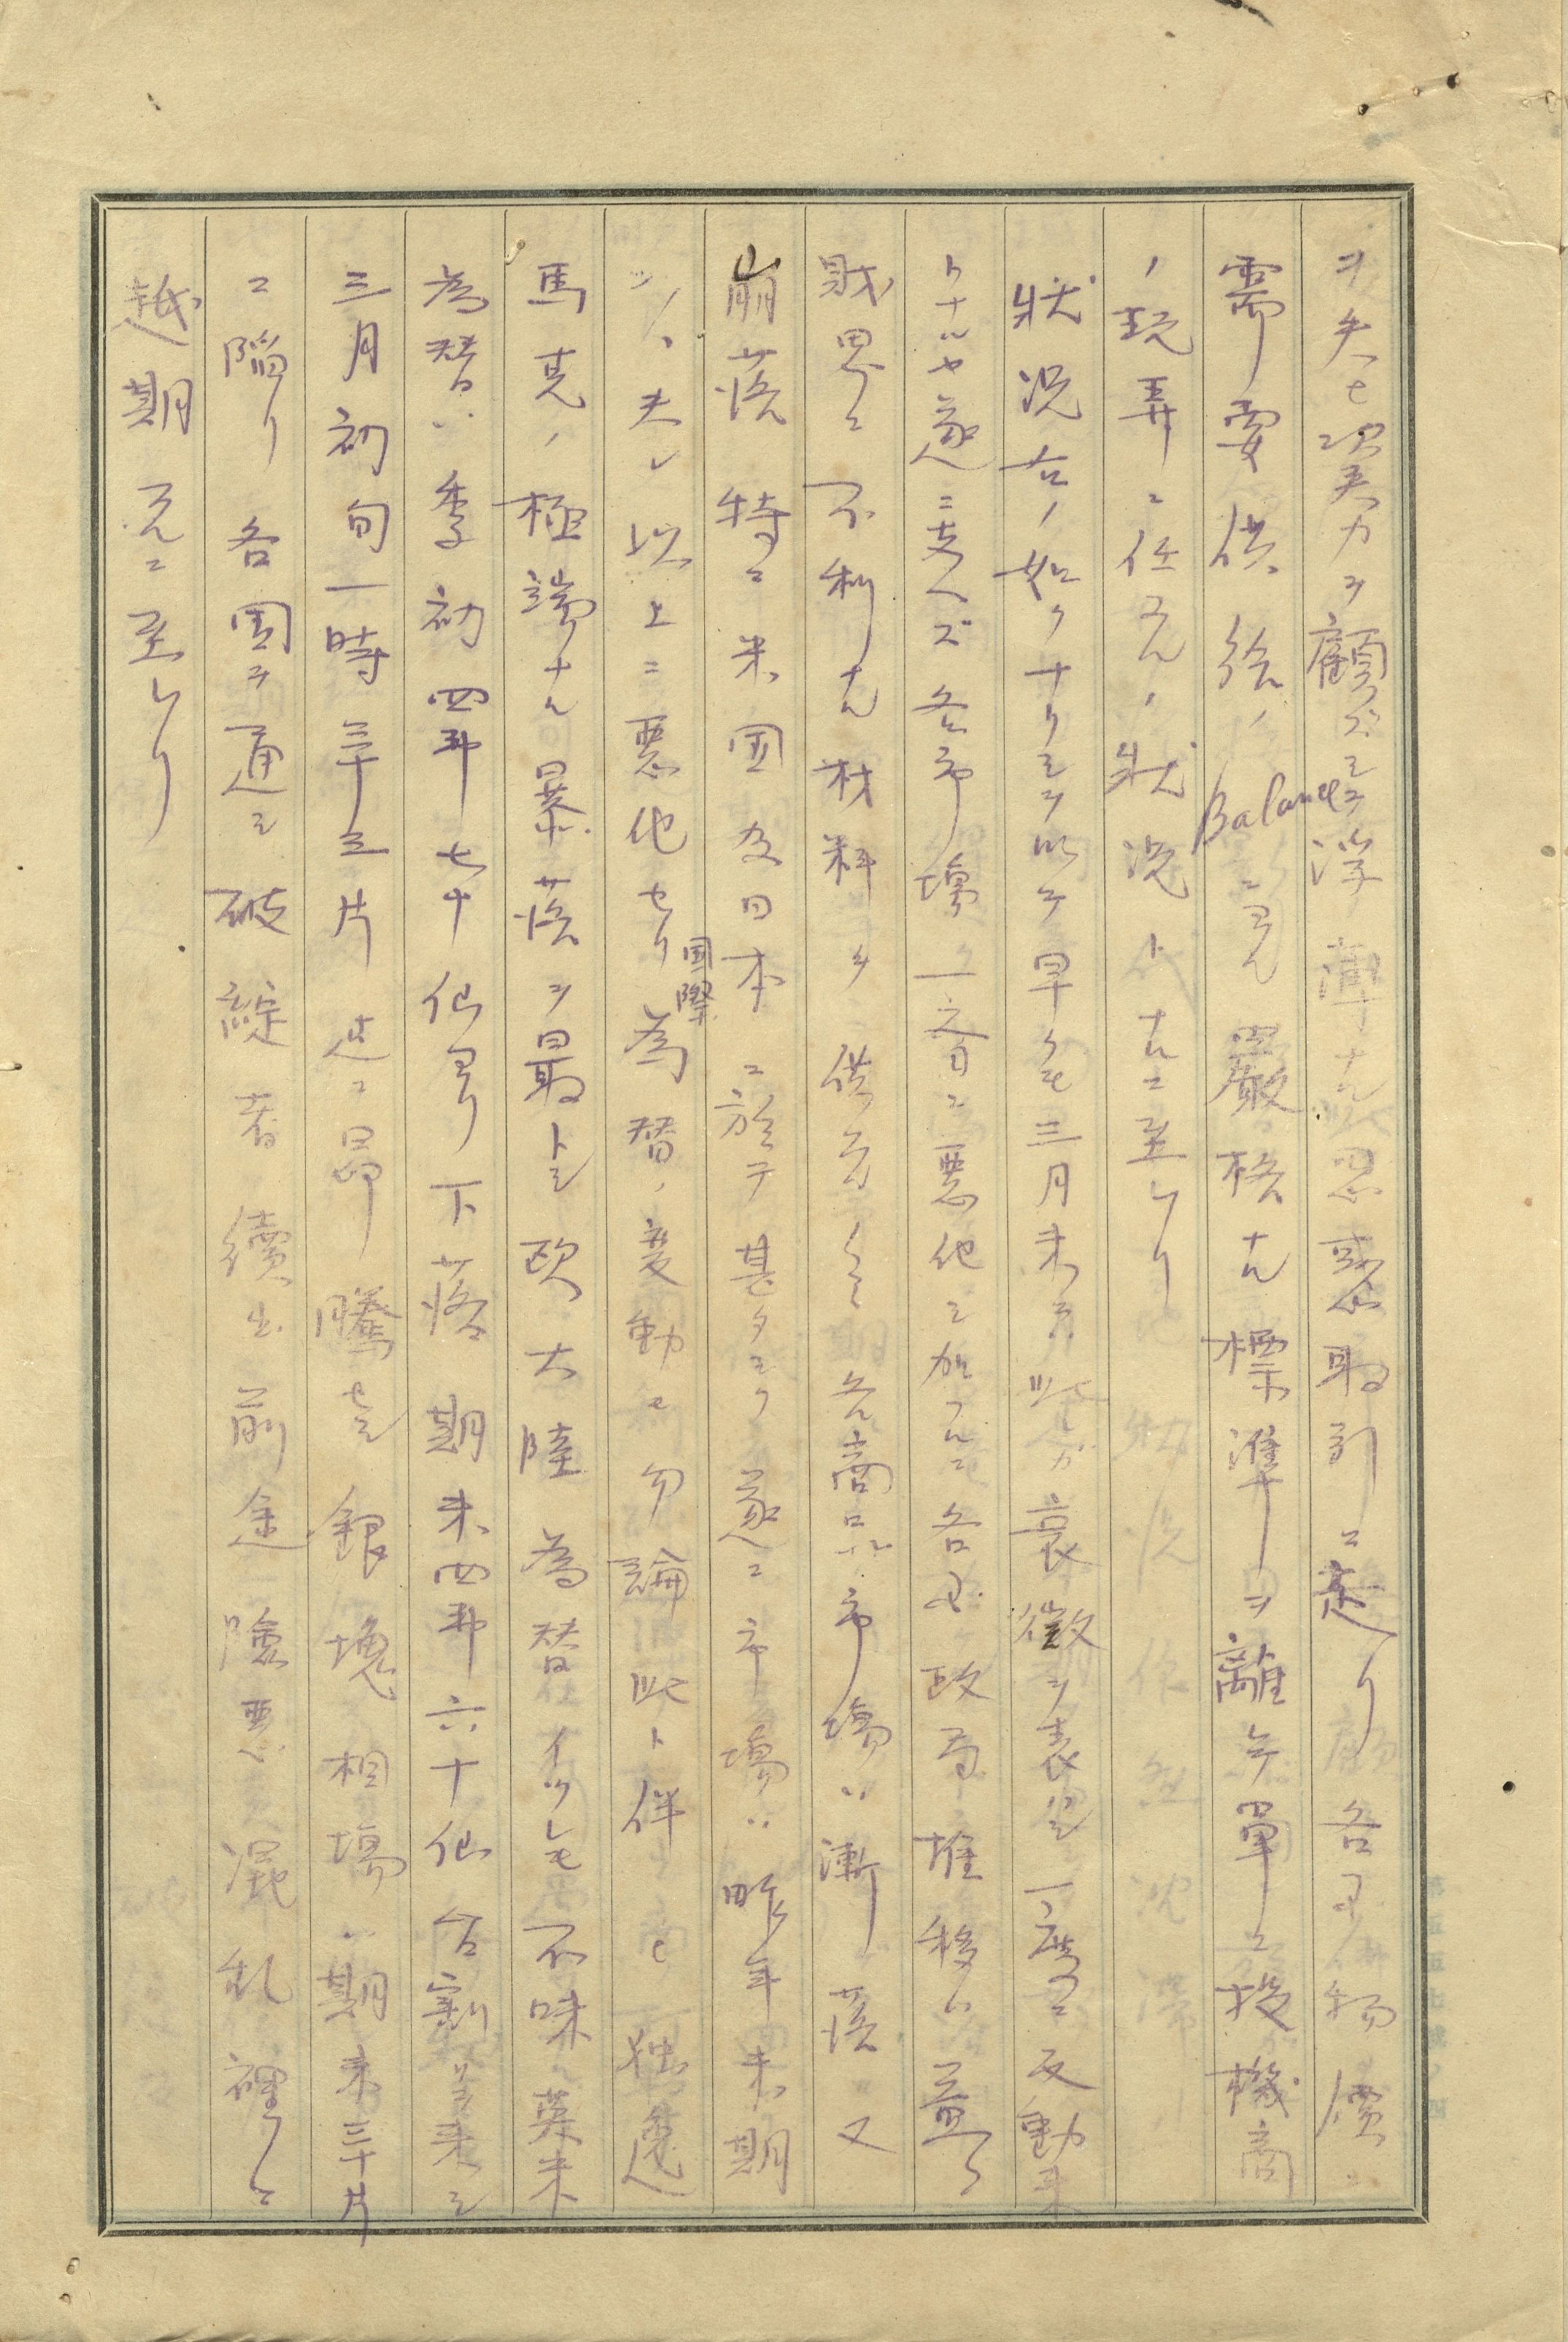 ヲ失セ突力ヲ顧ズシテ浮薄ナル思惑取引ニ走リ各国物價ハ
需要供給ノBalanceニヨル嚴格ナル標準ヲ離レ単ニ投機商
ノ玩弄ニ任スルノ状況トナルニ至レリ
状況右ノ如クナリシヲ以テ早クモ三月末ニハ此ガ衰徴ヲ表ハシ一度ビ反動来
トナルヤ遂ニ支ヘズ各市場ハ一斉ニ悪化シ加フルニ各国政局ノ推移ハ益々
財界ニ不利ナル材料ヲ供給シ各商品市場ハ漸落又
崩落特ニ米国及日本ニ於テ甚タシク遂ニ市場ハ昨年末期
ヨリハ夫レ以上ニ悪化セリ国際為替ノ変動モ勿論此ト伴ヒ独逸
馬克ノ極端ナル暴落ヲ最トシ欧大陸為替イヅレモ不味英米
為替ハ季初四弗七十仙ヨリ下落期末四弗六十仙台割ヲ来シ
三月初旬一時三十五片迄ニ昂騰セシ銀塊相場ハ期末三十片
ニ陥リ各国ヲ通シ破綻者續出前途險悪混乱裡ニ
越期スルニ至レリ